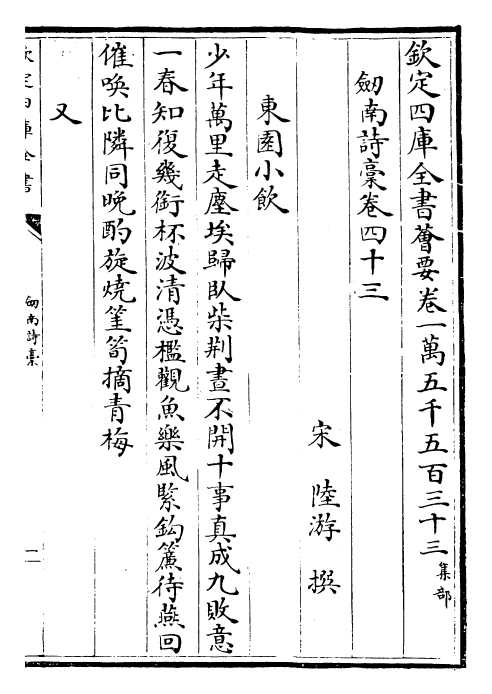 欽定四庫全書薈要卷一萬五千五百三十三 集部
劒南詩藁卷四十三
宋 陸游 撰
東園小飲
少年萬里走塵埃歸臥柴荆晝不開十事真成九敗意
一春知復幾銜杯波清憑檻觀魚樂風緊鈎簾待燕回
催喚比隣同晚酌旋燒筀筍摘青梅
又
欽定四庫全書
劒南詩藁